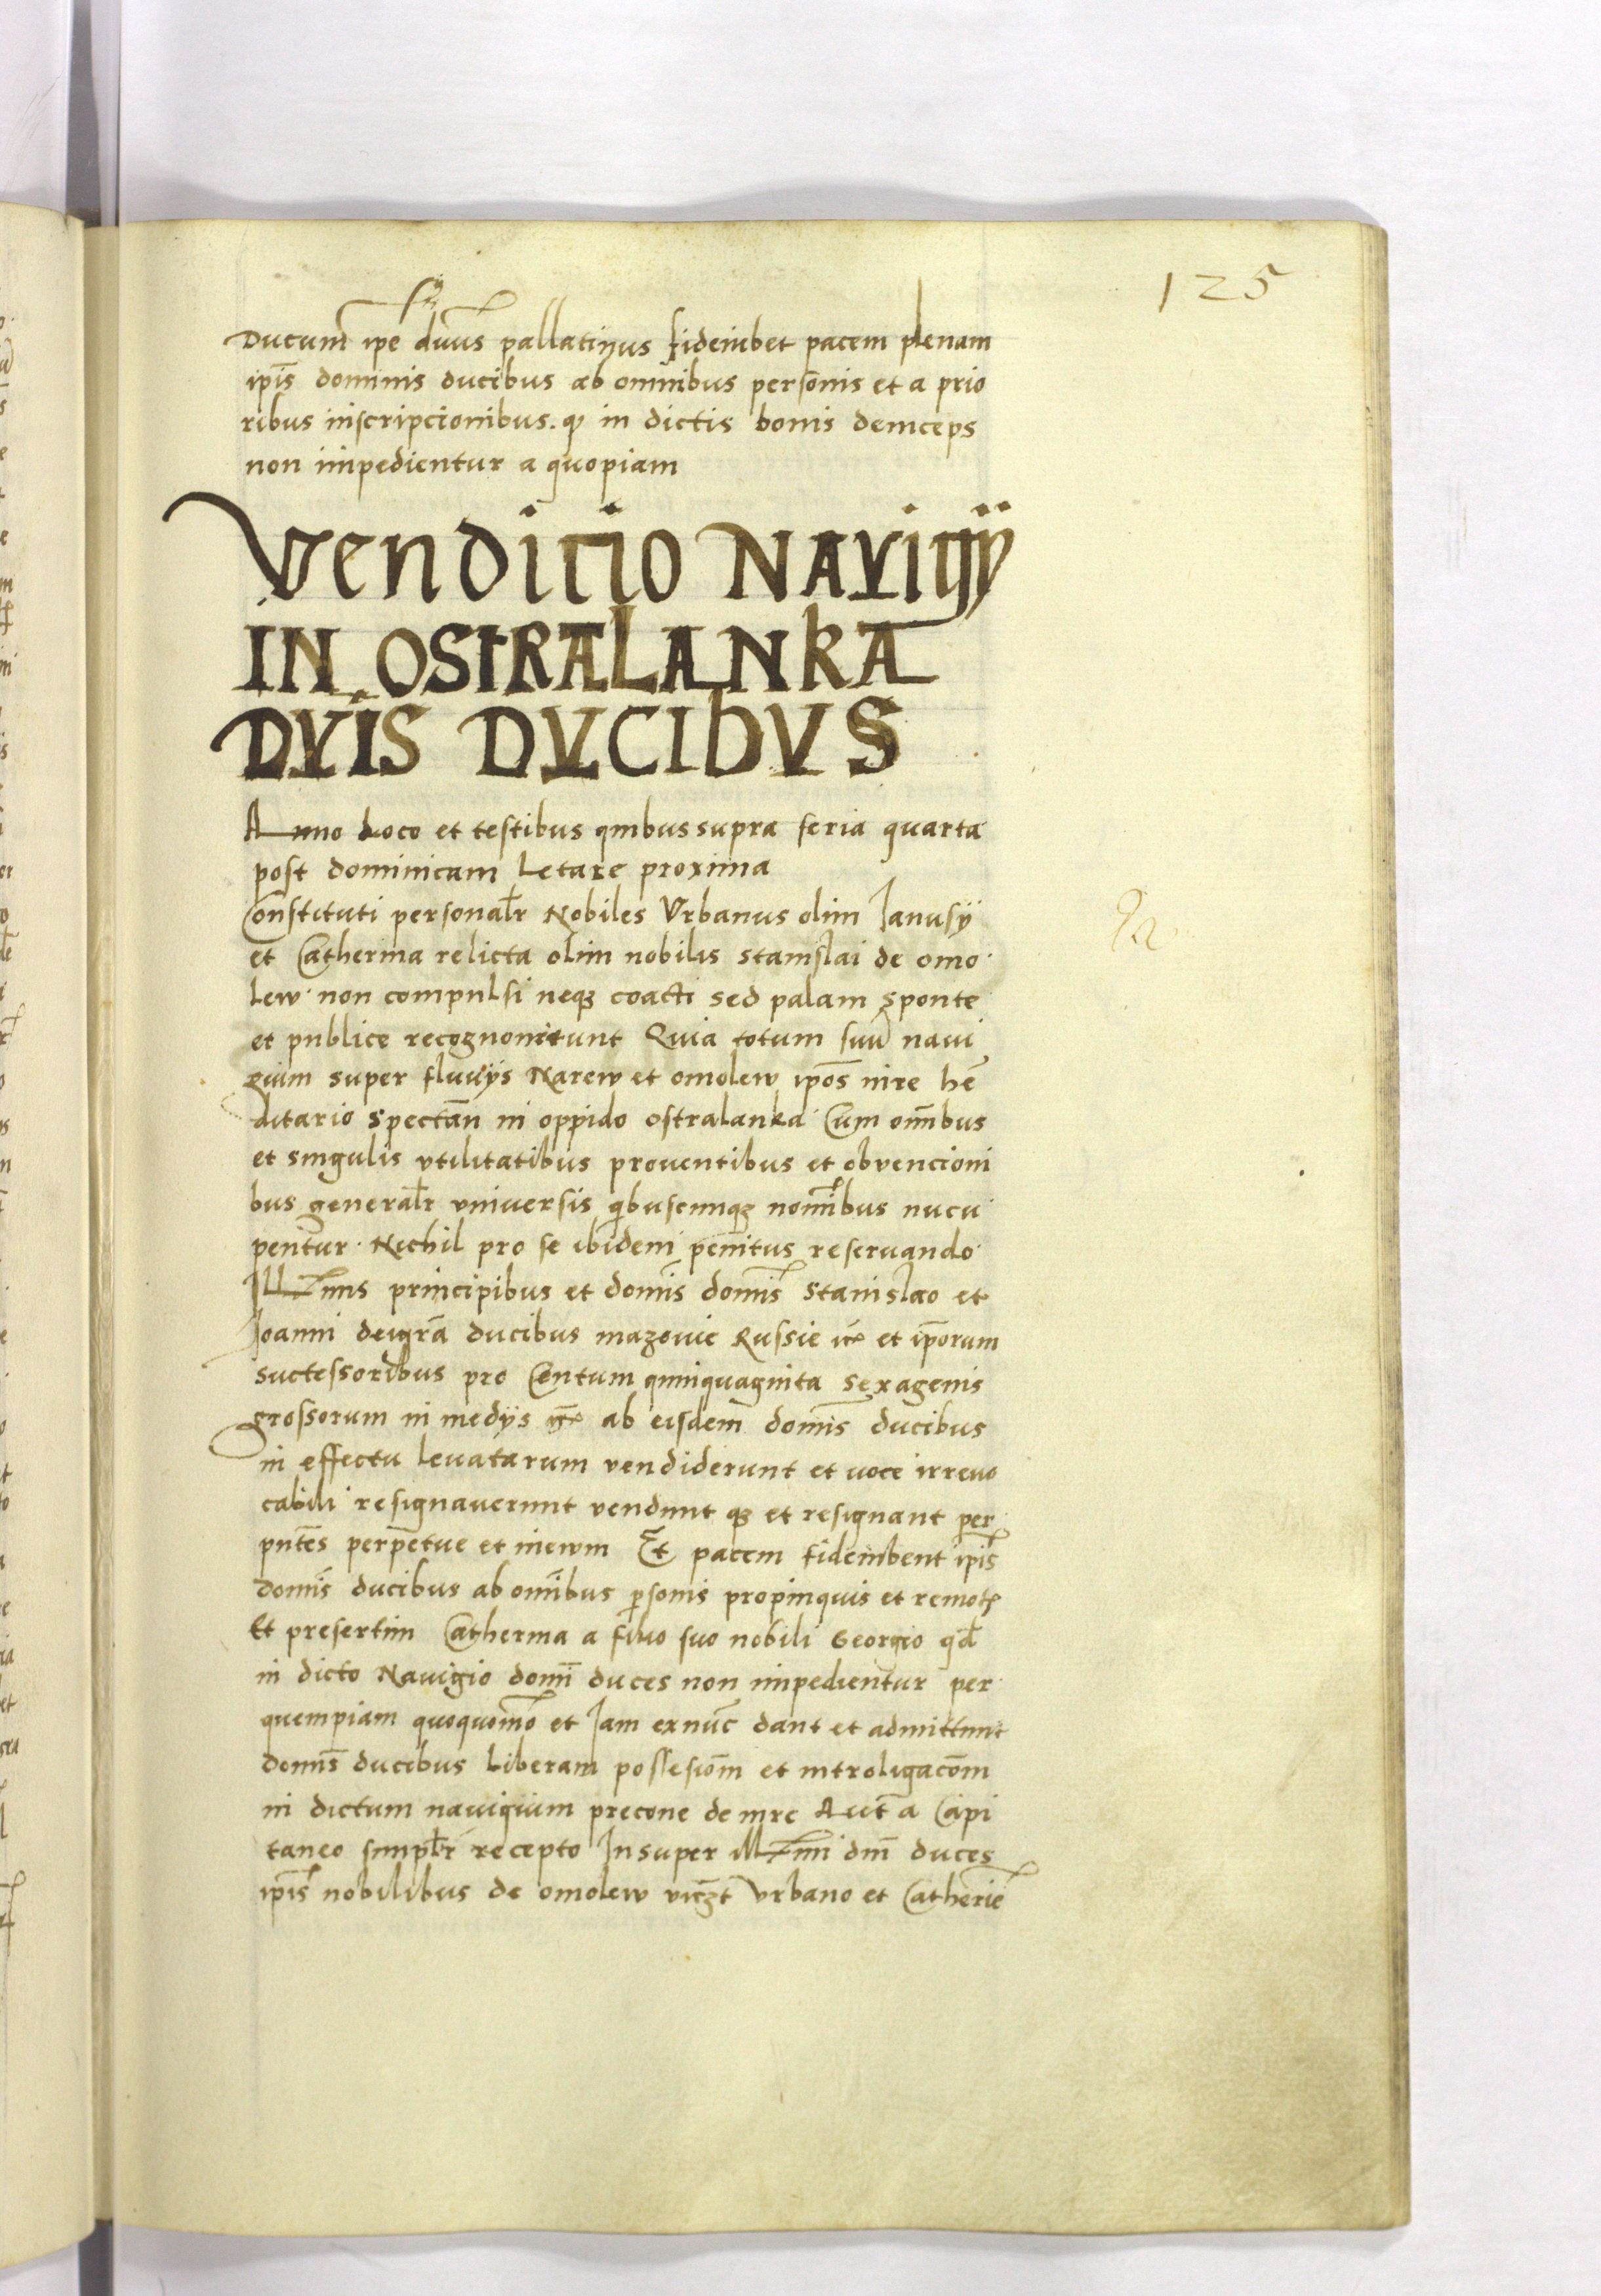 125
Ducum̄ ipe dnus pallatinus fideiubet pacem plenam
ip̄is dominis ducibus ab omnibus personis et a prio
ribus inscripcionibus. qȝ in dictis bonis deinceps
non impedientur a quopiam
Vendicio Navigÿ
in Ostralanka
Dnis Ducibus
Anno Loco et testibus quibus supra feria quarta
post dominicam Letare proxima
Constituti personalr Nobiles Vrbanus olim Janusÿ
et Catherina relicta olim nobilis Stanislai de omo
lew non compulsi neqȝ coacti sed palam sponte
et publice recognouerunt Quia totum suū naui
gium super fluuÿs Narew et omolew ip̄os iure he
ditario spectan̄ in oppido ostralanka Cum om̄ibus
et singulis vtilitatibus prouentibus et obvencioni
bus generalr vniuersis qibuscunqȝ nom̄ibus nucu
pentur. Nichil pro se ibidem penitus reseruando
Illmis principibus et domis domis Stanislao et
Joanni dei gr̄a ducibus mazouie Russie et ip̄orum
successoribus pro Centum quinquaginta sexagenis
grossorum in medÿs ab eisdem domis ducibus
in effectu leuatarum vendiderunt et voce irreuo
cabili resignauerunt vendunt qȝ et resignant per
pn̄tes perpetue et in ewm Et pacem fideiubent ip̄is
domis ducibus ab om̄ibus psonis propinquis et remotis
Et presertim Catherina a filio suo nobili Georgio qd
in dicto Nauigio domi duces non impedientur per
quempiam quoquomo et Jam exnūc dant et admittunt
domis ducibus liberam possesiom̄ et introligacōm
in dictum nauigium precone de iure Aut a Capi
taneo simplr recepto Insuper Illmi dni duces
ip̄is nobilibus de omolew viczt Vrbano et Catherie